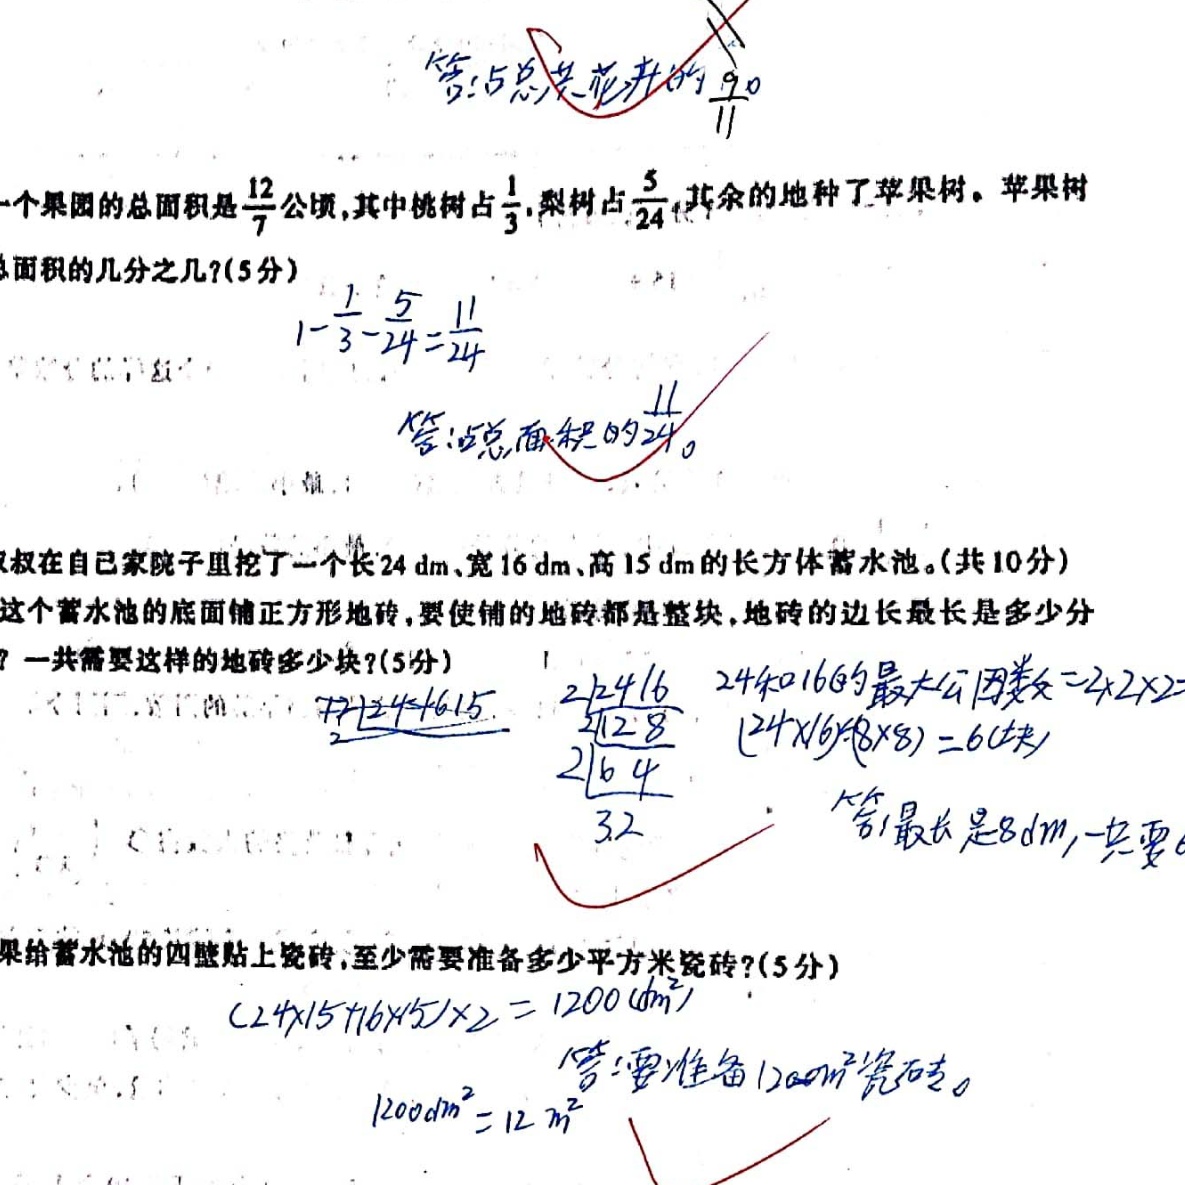 答:占总共花卉的9/11。
一个果园的总面积是12/7公顷,其中桃树占1/3,梨树占5/24,其余的地种了苹果树。苹果树
总面积的几分之几?(5分)
1-1/3-5/24=11/24
答:占总面积的11/24。
叔在自己家院子里挖了一个长24 dm、宽16 dm、高15 dm的长方体蓄水池。(共10分)
这个蓄水池的底面铺正方形地砖,要使铺的地砖都是整块,地砖的边长最长是多少分
? 一共需要这样的地砖多少块?(5分)
2 24 16
24和16的最大公因数=2×2×2=
2 12 8
(24×16)÷(8×8)=6(块)
2 6 4
3 2
答:最长是8dm,一共要6
果给蓄水池的四壁贴上瓷砖,至少需要准备多少平方米瓷砖?(5分)
(24×15+16×15)×2=1200(dm²)
答:要准备12m²瓷砖。
1200dm²=12m²